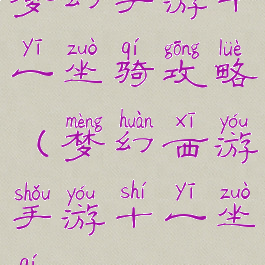 梦幻手游十
yī zuò qí gōng lüè
一坐骑攻略
mèng huàn xī yóu
（梦幻西游
shǒu yóu shí yī zuò
手游十一坐
qí